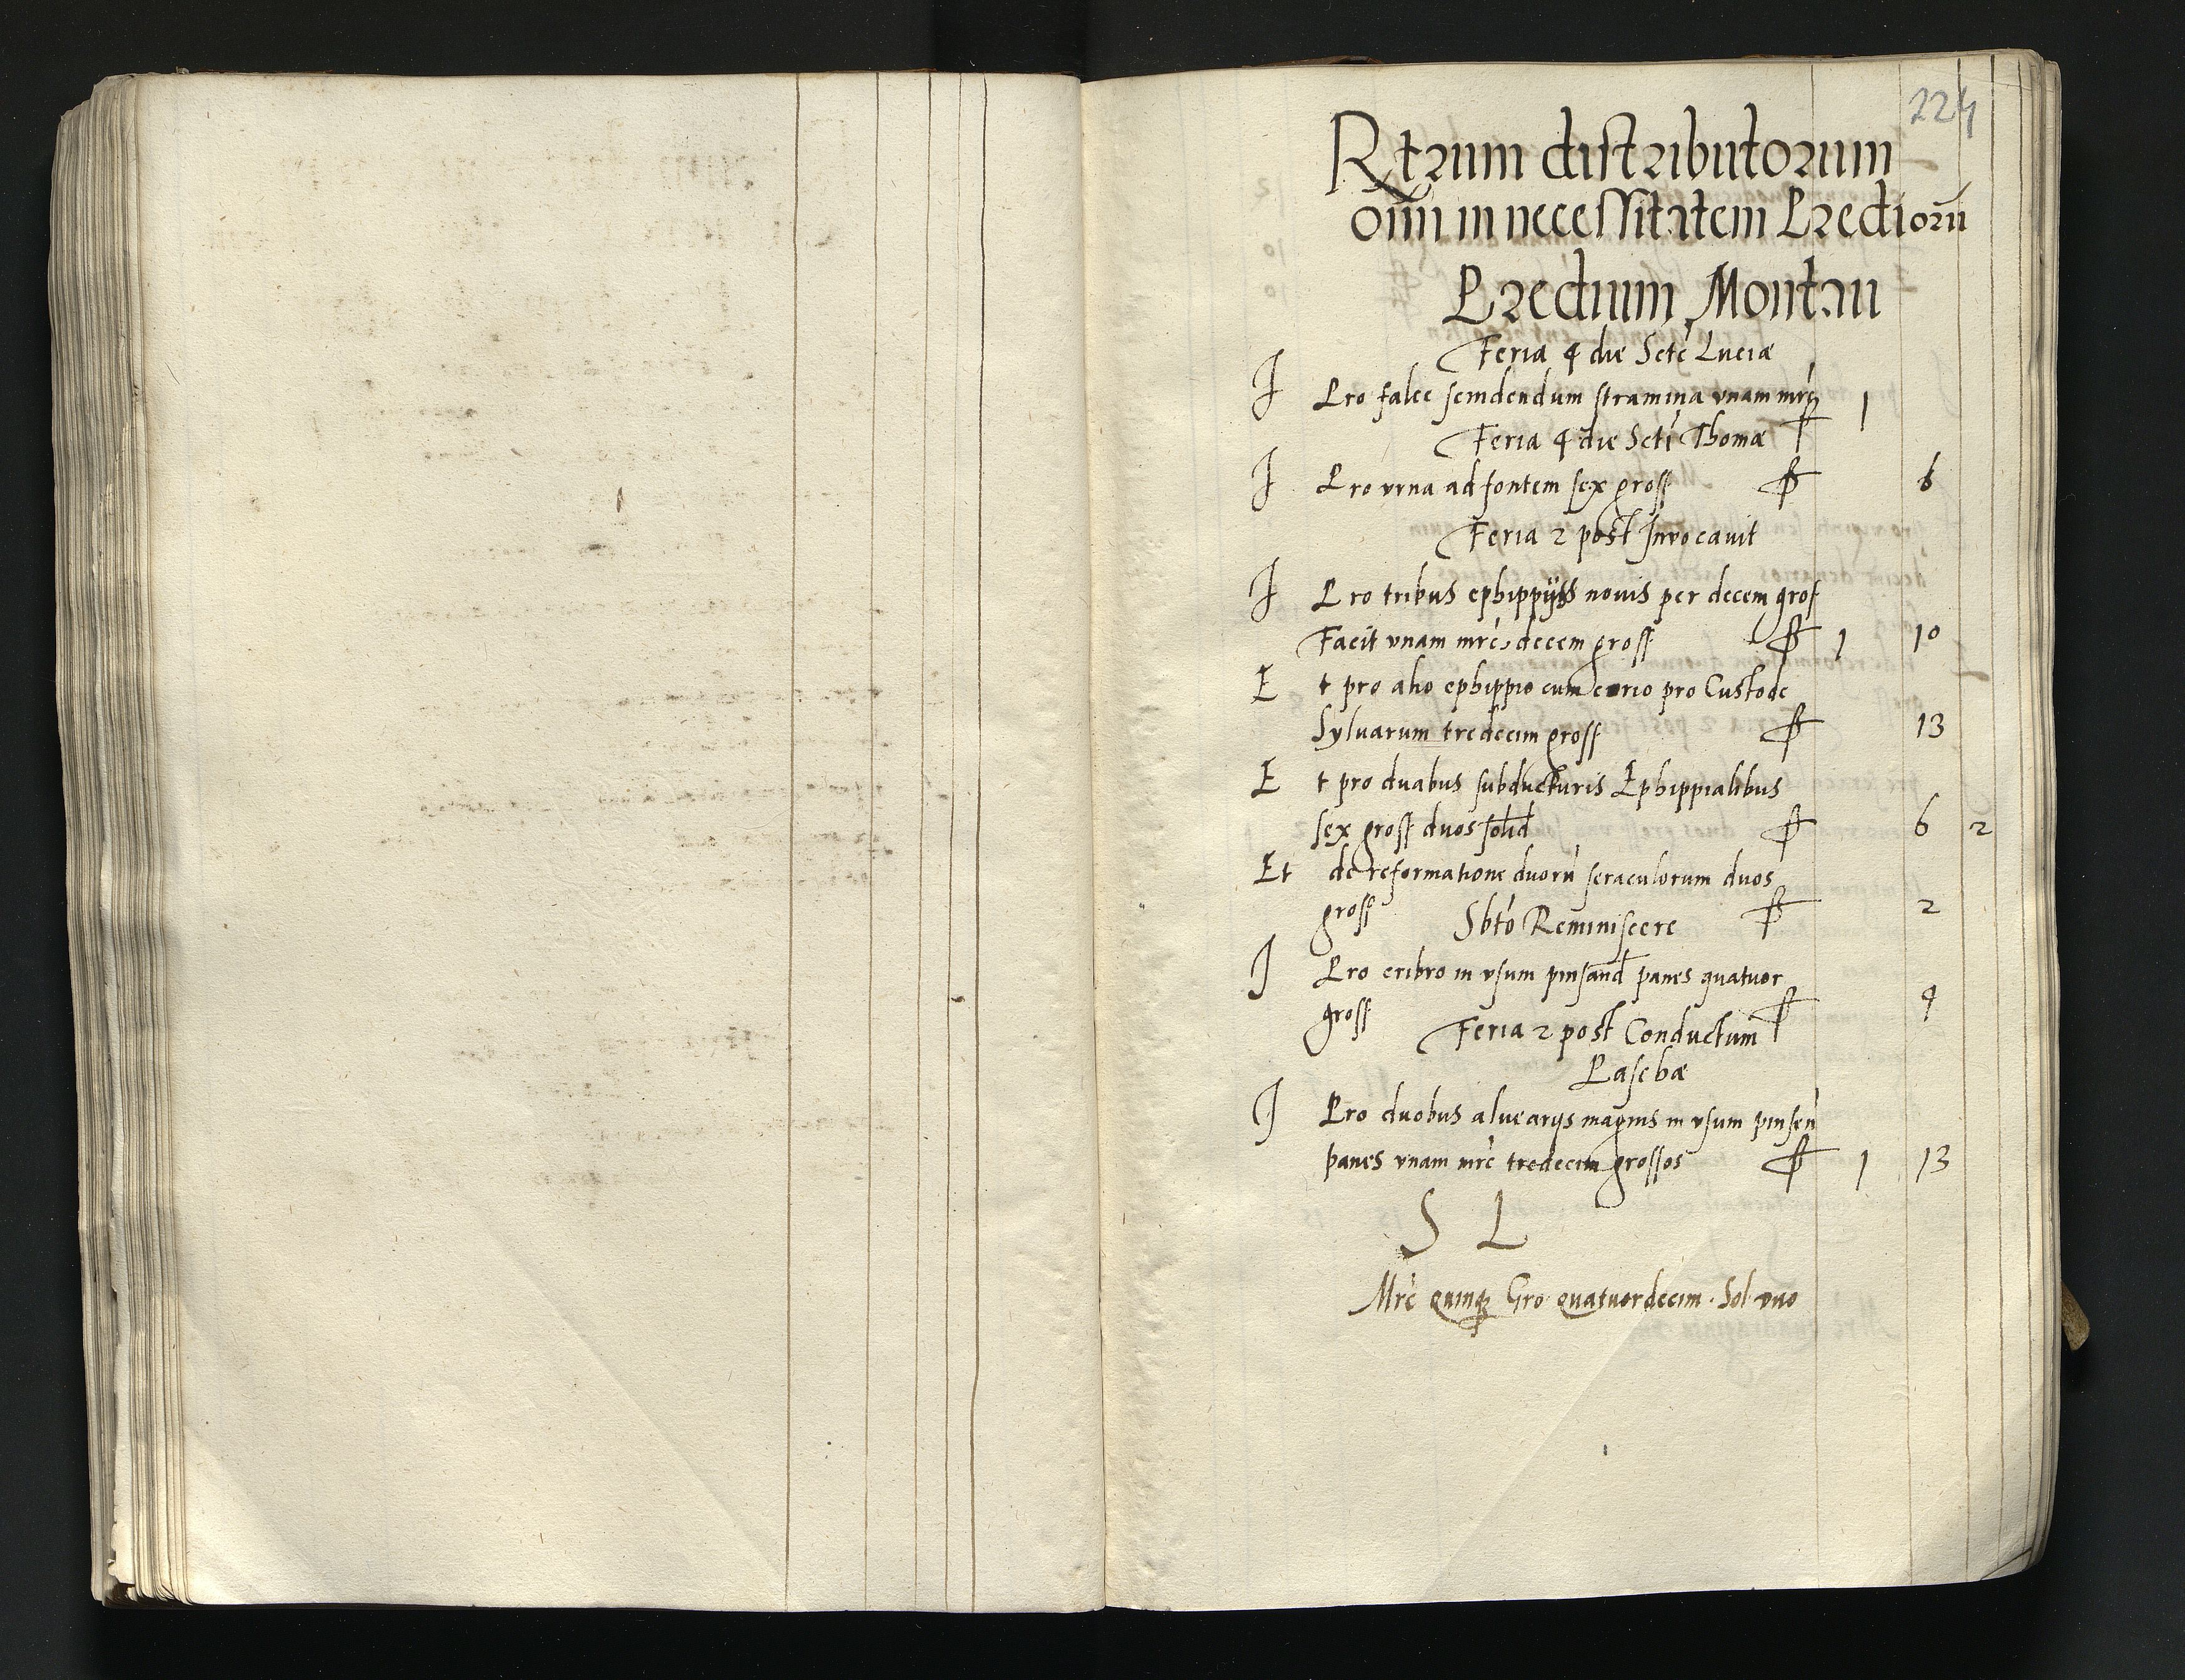 224
Rtrum distributorum
oim in necessitatem Prediorū
Predium Montau
Feria 4 die Scte Luciæ
I Pro falce scindendum stramina vnam mrc 1
Feria 4 die Scti Thomæ
I Pro vrna ad fontem sex gross 6
Feria 2 post Invocauit
I Pro tribus ephippijs nouis per decem gros
Facit vnam mrc, decem gross 1 10
Et pro alio ephippio cum corio pro Custode
Syluarum tredecim gross 13
Et pro duabus subducturis Ephippialibus
sex gross duos solid 6 2
Et de reformatione duorū seraculorum duos
gross 2
Sbto Reminiscere
I Pro cribro in vsum pinsand panes quatuor
gross 4
Feria 2 post Conductum
Paschæ
I Pro duobus aluearijs magnis in vsum pinsen
panes vnam mrc tredecim grossos 1 13
S L
Mrc quinq Gro quatuordecim. Sol vno